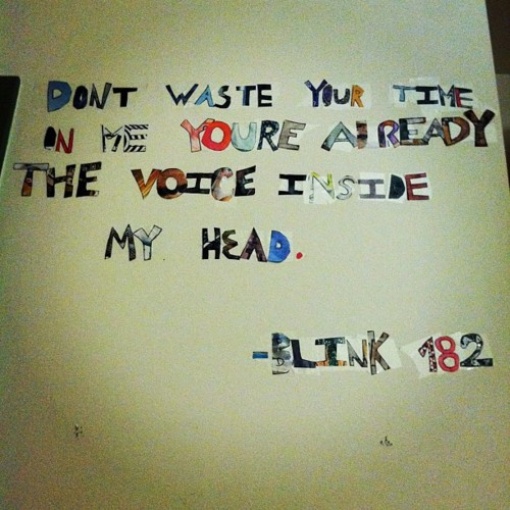 DONT WASTE YOUR TIME
ON ME YOURE ALREADY
THE VOICE INSIDE
MY HEAD.
-BLINK 182